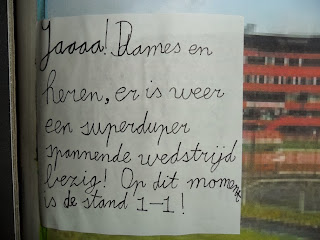 Jaaaa! Dames en
heren, er is weer
een superduper
spannende wedstrijd
bezig! Op dit moment
is de stand 1-1!